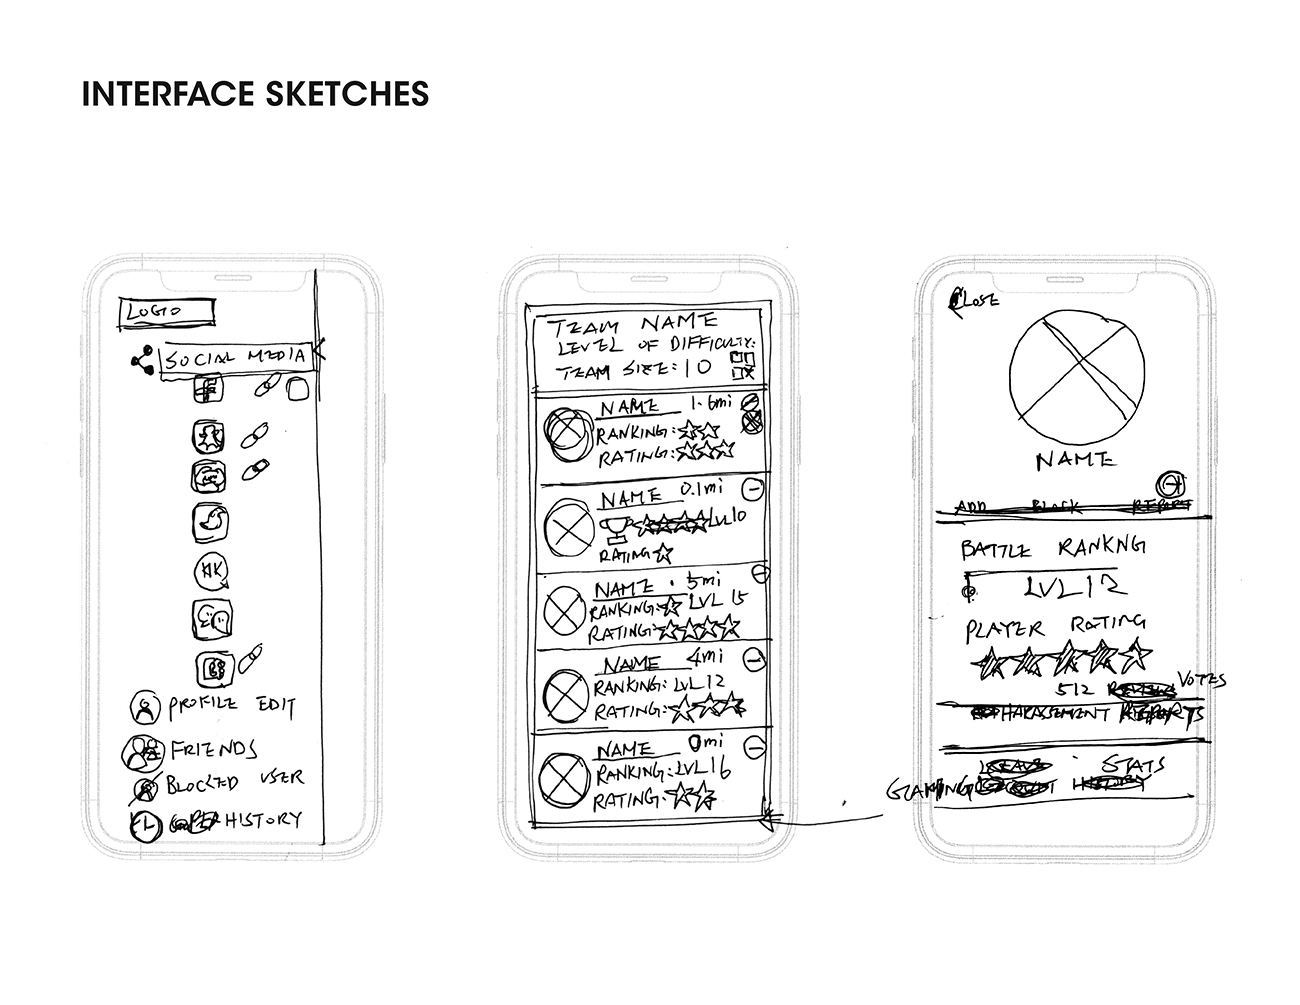 INTERFACE SKETCHES
LOGO
SOCIAL MEDIA
KIK
PROFILE EDIT
FRIENDS
BLOCKED USER
HISTORY
TEAM NAME
LEVEL OF DIFFICULTY:
TEAM SIZE: 10
NAME 1.6mi
RANKING:
RATING:
NAME 0.1mi
LVL10
RATING
NAME .5mi
RANKING: LVL 15
RATING:
NAME 4mi
RANKING: LVL12
RATING:
NAME 0mi
RANKING: LVL16
RATING:
CLOSE
NAME
ADD BLOCK REPORT
BATTLE RANKNG
LVL12
PLAYER RATING
512 VOTES
HARASSMENT REPORTS
STATS
GAMING